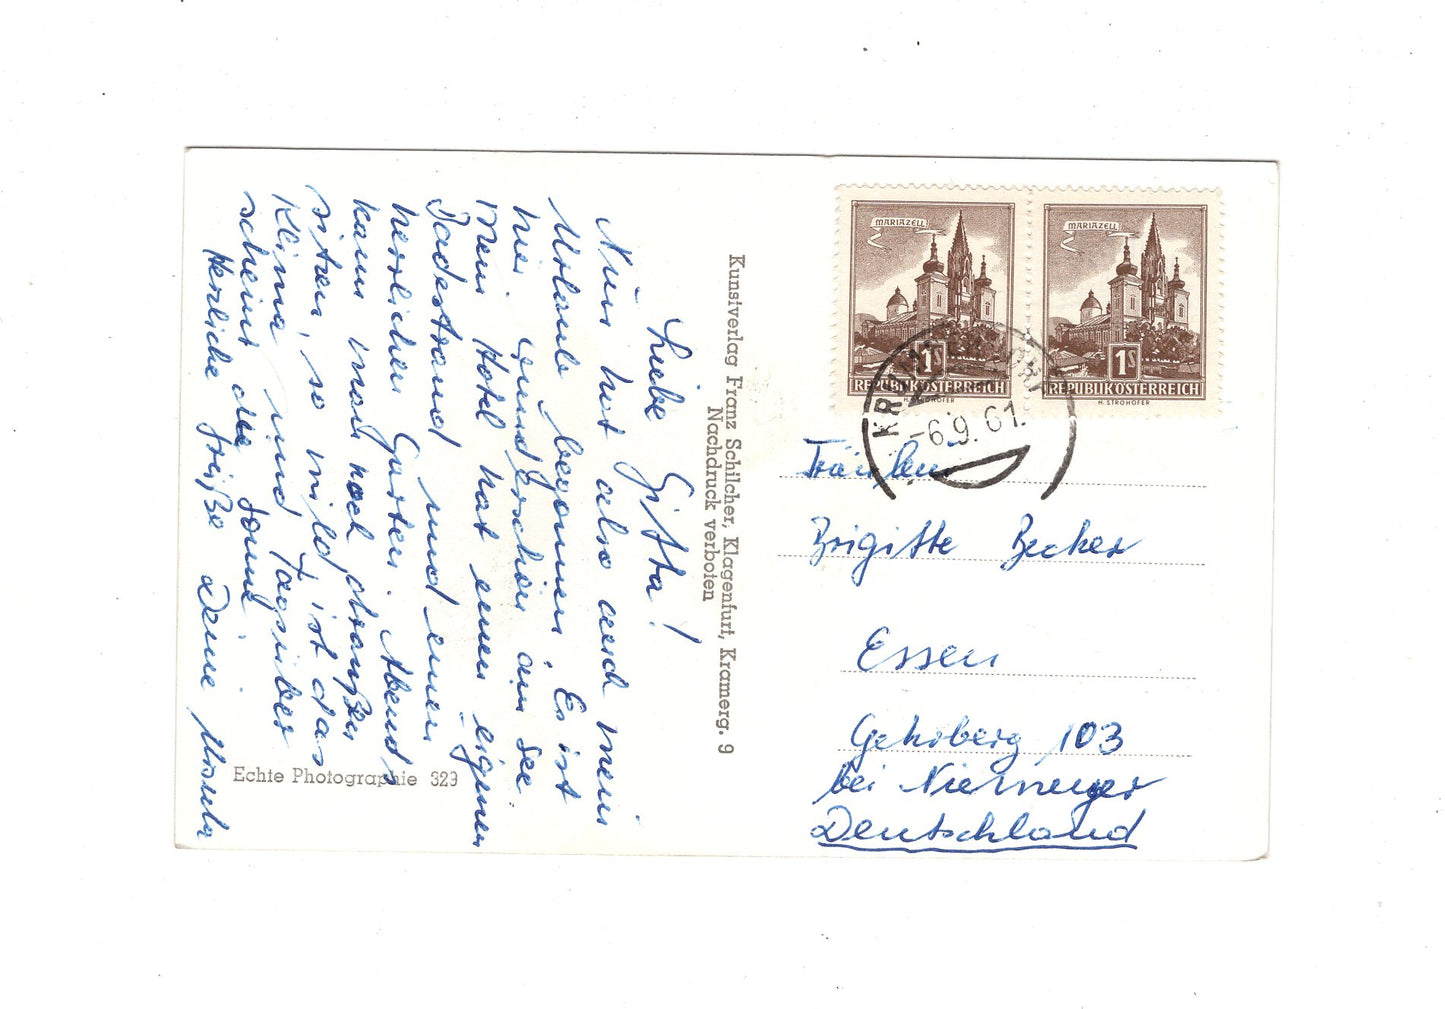 Liebe Gitta!
Nun hat also auch mein
Urlaub begonnen. Es ist
hier wunderschön am See.
Mein Hotel hat einen eigenen
Badestrand und einen
herrlichen Garten. Abends
kann man noch draußen
sitzen, so mild ist das
Klima, und Tagsüber
scheint die Sonne.
Herzliche Grüße Deine Ursula
Echte Photographie 329
Kunstverlag Franz Schilcher, Klagenfurt, Kramerg. 9
Nachdruck verboten
MARIAZELL
1S
REPUBLIK ÖSTERREICH
H. STROHOFER
MARIAZELL
1S
REPUBLIK ÖSTERREICH
H. STROHOFER
-6.9.61.
Fräulein
Brigitte Becker
Essen
Gehrberg 103
bei Niemeyer
Deutschland